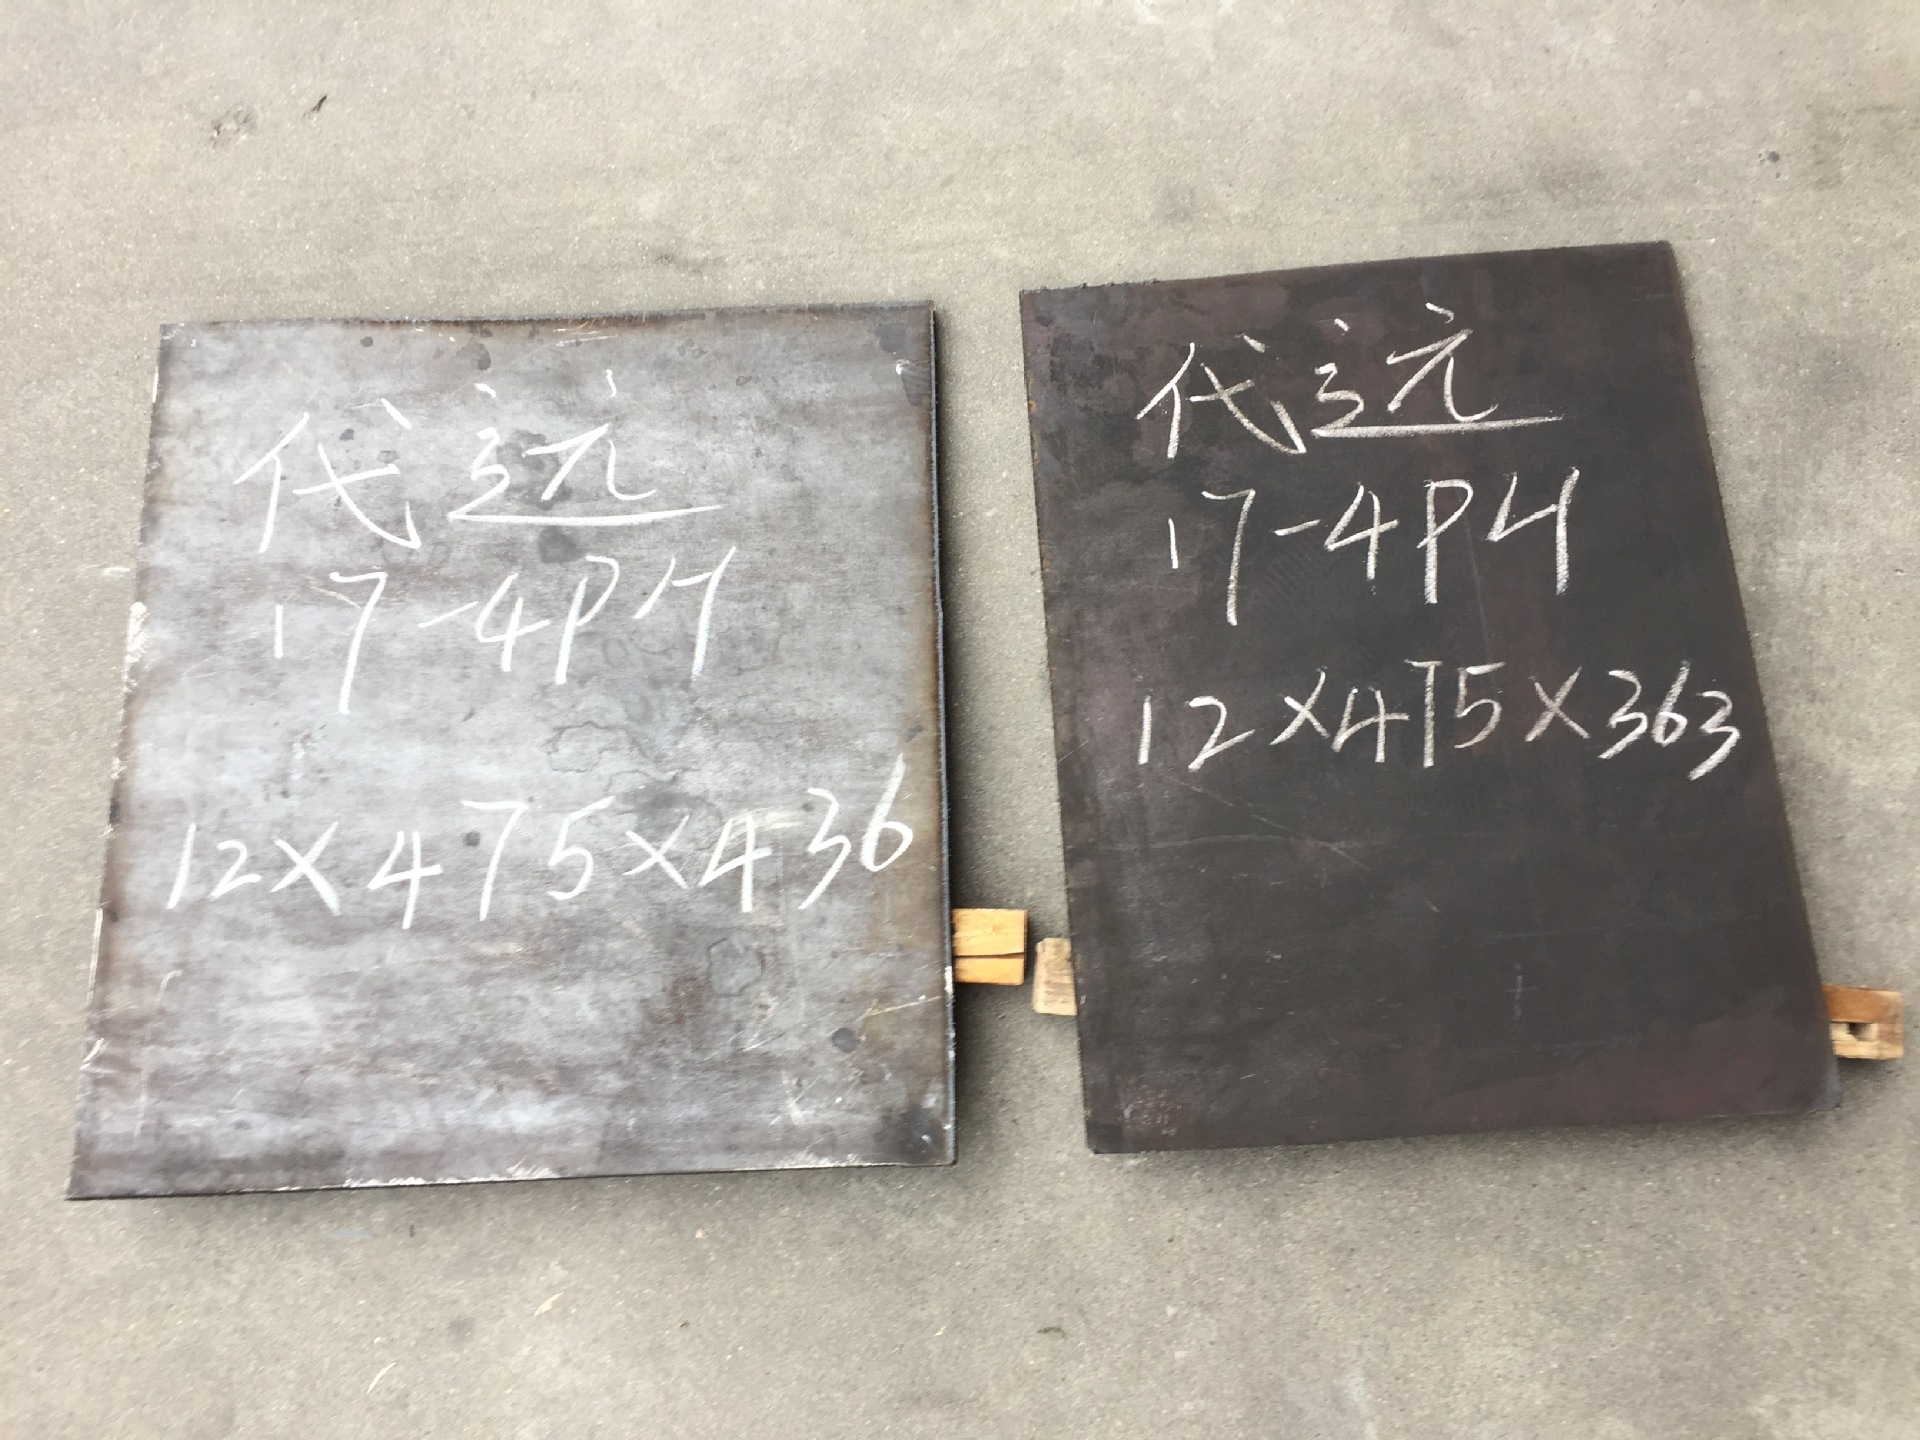 代远
17-4PH
12×475×436
代远
17-4PH
12×475×363